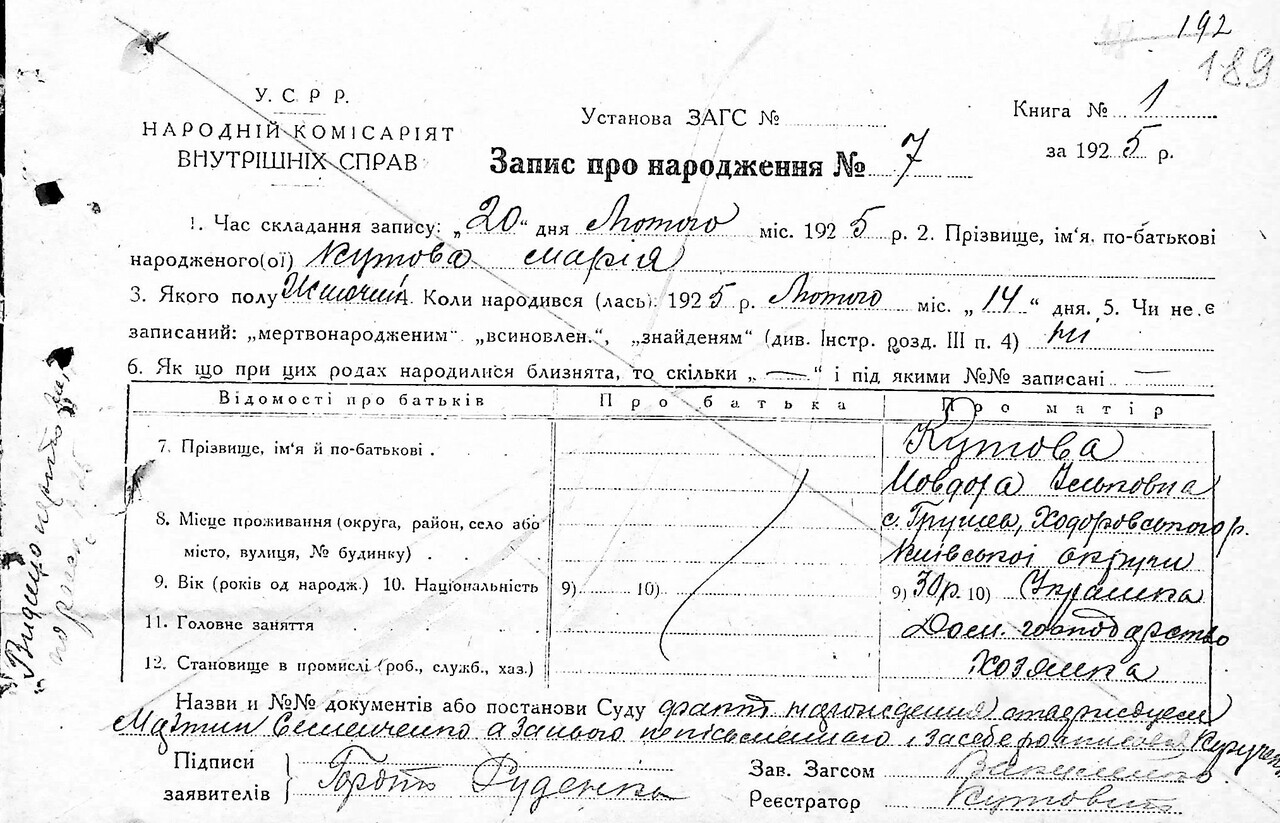 192
189
У. С. Р Р.
НАРОДНІЙ КОМІСАРІЯТ
ВНУТРІШНІХ СПРАВ
Установа ЗАГС №
Книга № 1
за 1925 р.
Запис про народження № 7
1. Час складання запису: „20“ дня Лютого міс. 1925 р. 2. Прізвище, ім'я, по-батькові
народженого(ої) Кутова Марія
3. Якого полу Жіночий 4. Коли народився (лась). 1925 р. Лютого міс. „14“ дня. 5. Чи не є
записаний: „мертвонародженим“ „всиновлен.“, „знайденям“ (див. Інстр. розд. III п. 4) ні
6. Як що при цих родах народилися близнята, то скільки „—“ і під якими №№ записані —
Відомості про батьків Про батька Про матір
7. Прізвище, ім'я й по-батькові . Кутова
Мовдора
8. Місце проживання (округа, район, село або с. Грушев, Ходоровського р.
місто, вулиця, № будинку) . . Київської округи
9. Вік (років од народж.) 10. Національність 9) 10) 9) 30 р. 10) Українка
11. Головне заняття Дом. господарство
12. Становище в промислі (роб., служб., хаз.) Хозяйка
Назви и №№ документів або постанови Суду факт
Мартин Семенченко а за нього
Підписи
заявителів Руденко
Зав. Загсом
Реєстратор